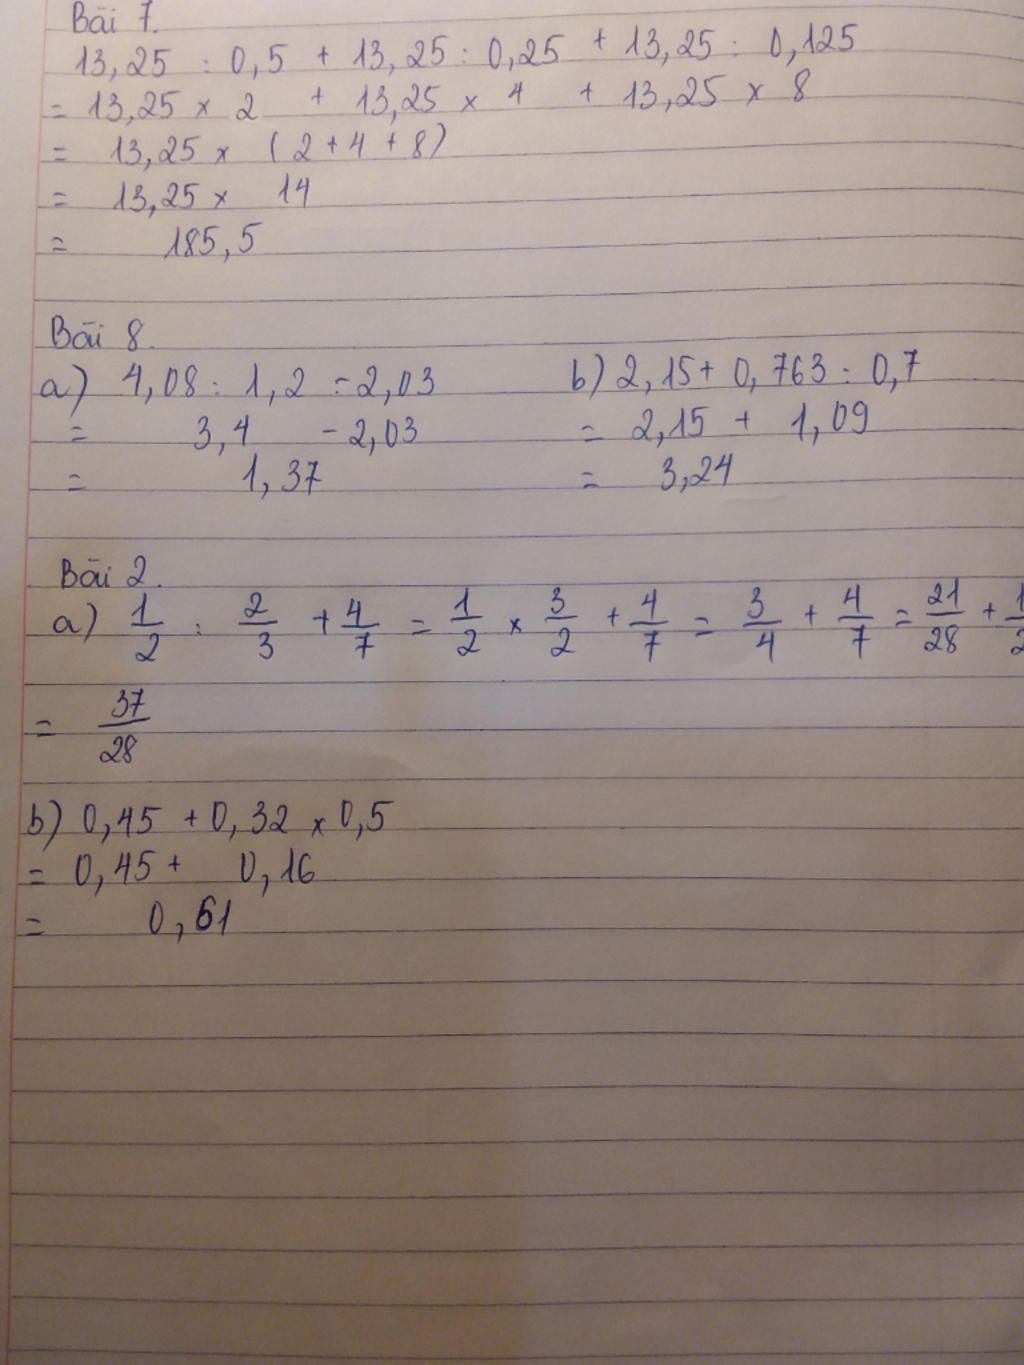 Bài 7.
13,25 : 0,5 + 13,25 : 0,25 + 13,25 : 0,125
= 13,25 × 2 + 13,25 × 4 + 13,25 × 8
= 13,25 × (2 + 4 + 8)
= 13,25 × 14
= 185,5
Bài 8.
a) 4,08 : 1,2 - 2,03
= 3,4 - 2,03
= 1,37
b) 2,15 + 0,763 : 0,7
= 2,15 + 1,09
= 3,24
Bài 2.
a) 1/2 : 2/3 + 4/7 = 1/2 × 3/2 + 4/7 = 3/4 + 4/7 = 21/28 +
= 37/28
b) 0,45 + 0,32 × 0,5
= 0,45 + 0,16
= 0,61